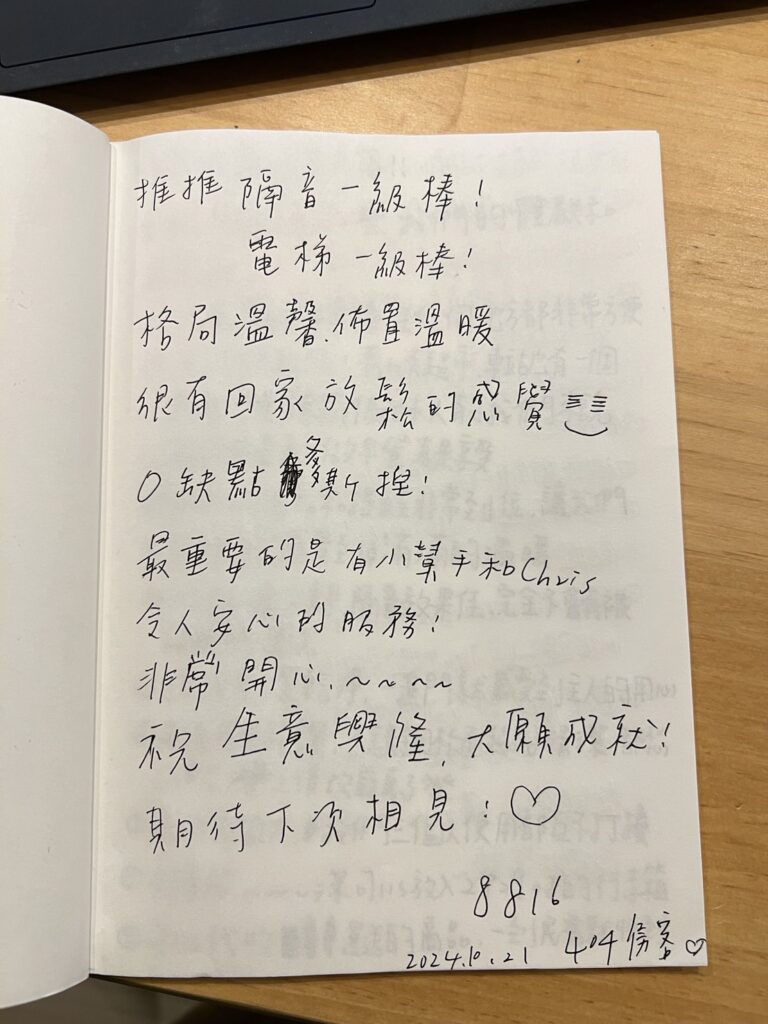 推推 隔音一級棒!
電梯一級棒!
格局溫馨、佈置溫暖
很有回家放鬆的感覺
0缺點
最重要的是有小幫手和Chris
令人安心的服務!
非常開心.~~~~
祝生意興隆,大願成就!
期待下次相見!♡
8816
2024.10.21 404房客♡